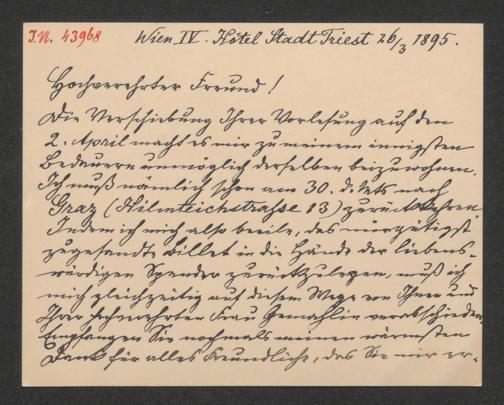 I.N. 43968
Wien IV. Hôtel Stadt Triest 26/3 1895.
Hochverehrter Freund!
Die Verschiebung Ihrer Vorlesung auf den
2. April macht es mir zu meinem innigsten
Bedauern unmöglich derselben beizuwohnen.
Ich muß nämlich schon am 30. d. Mts nach
Graz (Hilmteichstraße 13) zurückkehren.
Indem ich mich also beeile, das mir gütigst
zugesandte Billet in die Hände der liebens-
würdigen Spender zurückzulegen, muß ich
mich gleichzeitig auf diesem Wege von Ihnen und
Ihrer hochverehrten Frau Gemahlin verabschieden.
Empfangen Sie nochmals meinen wärmsten
Dank für alles Freundliche, das Sie mir er-